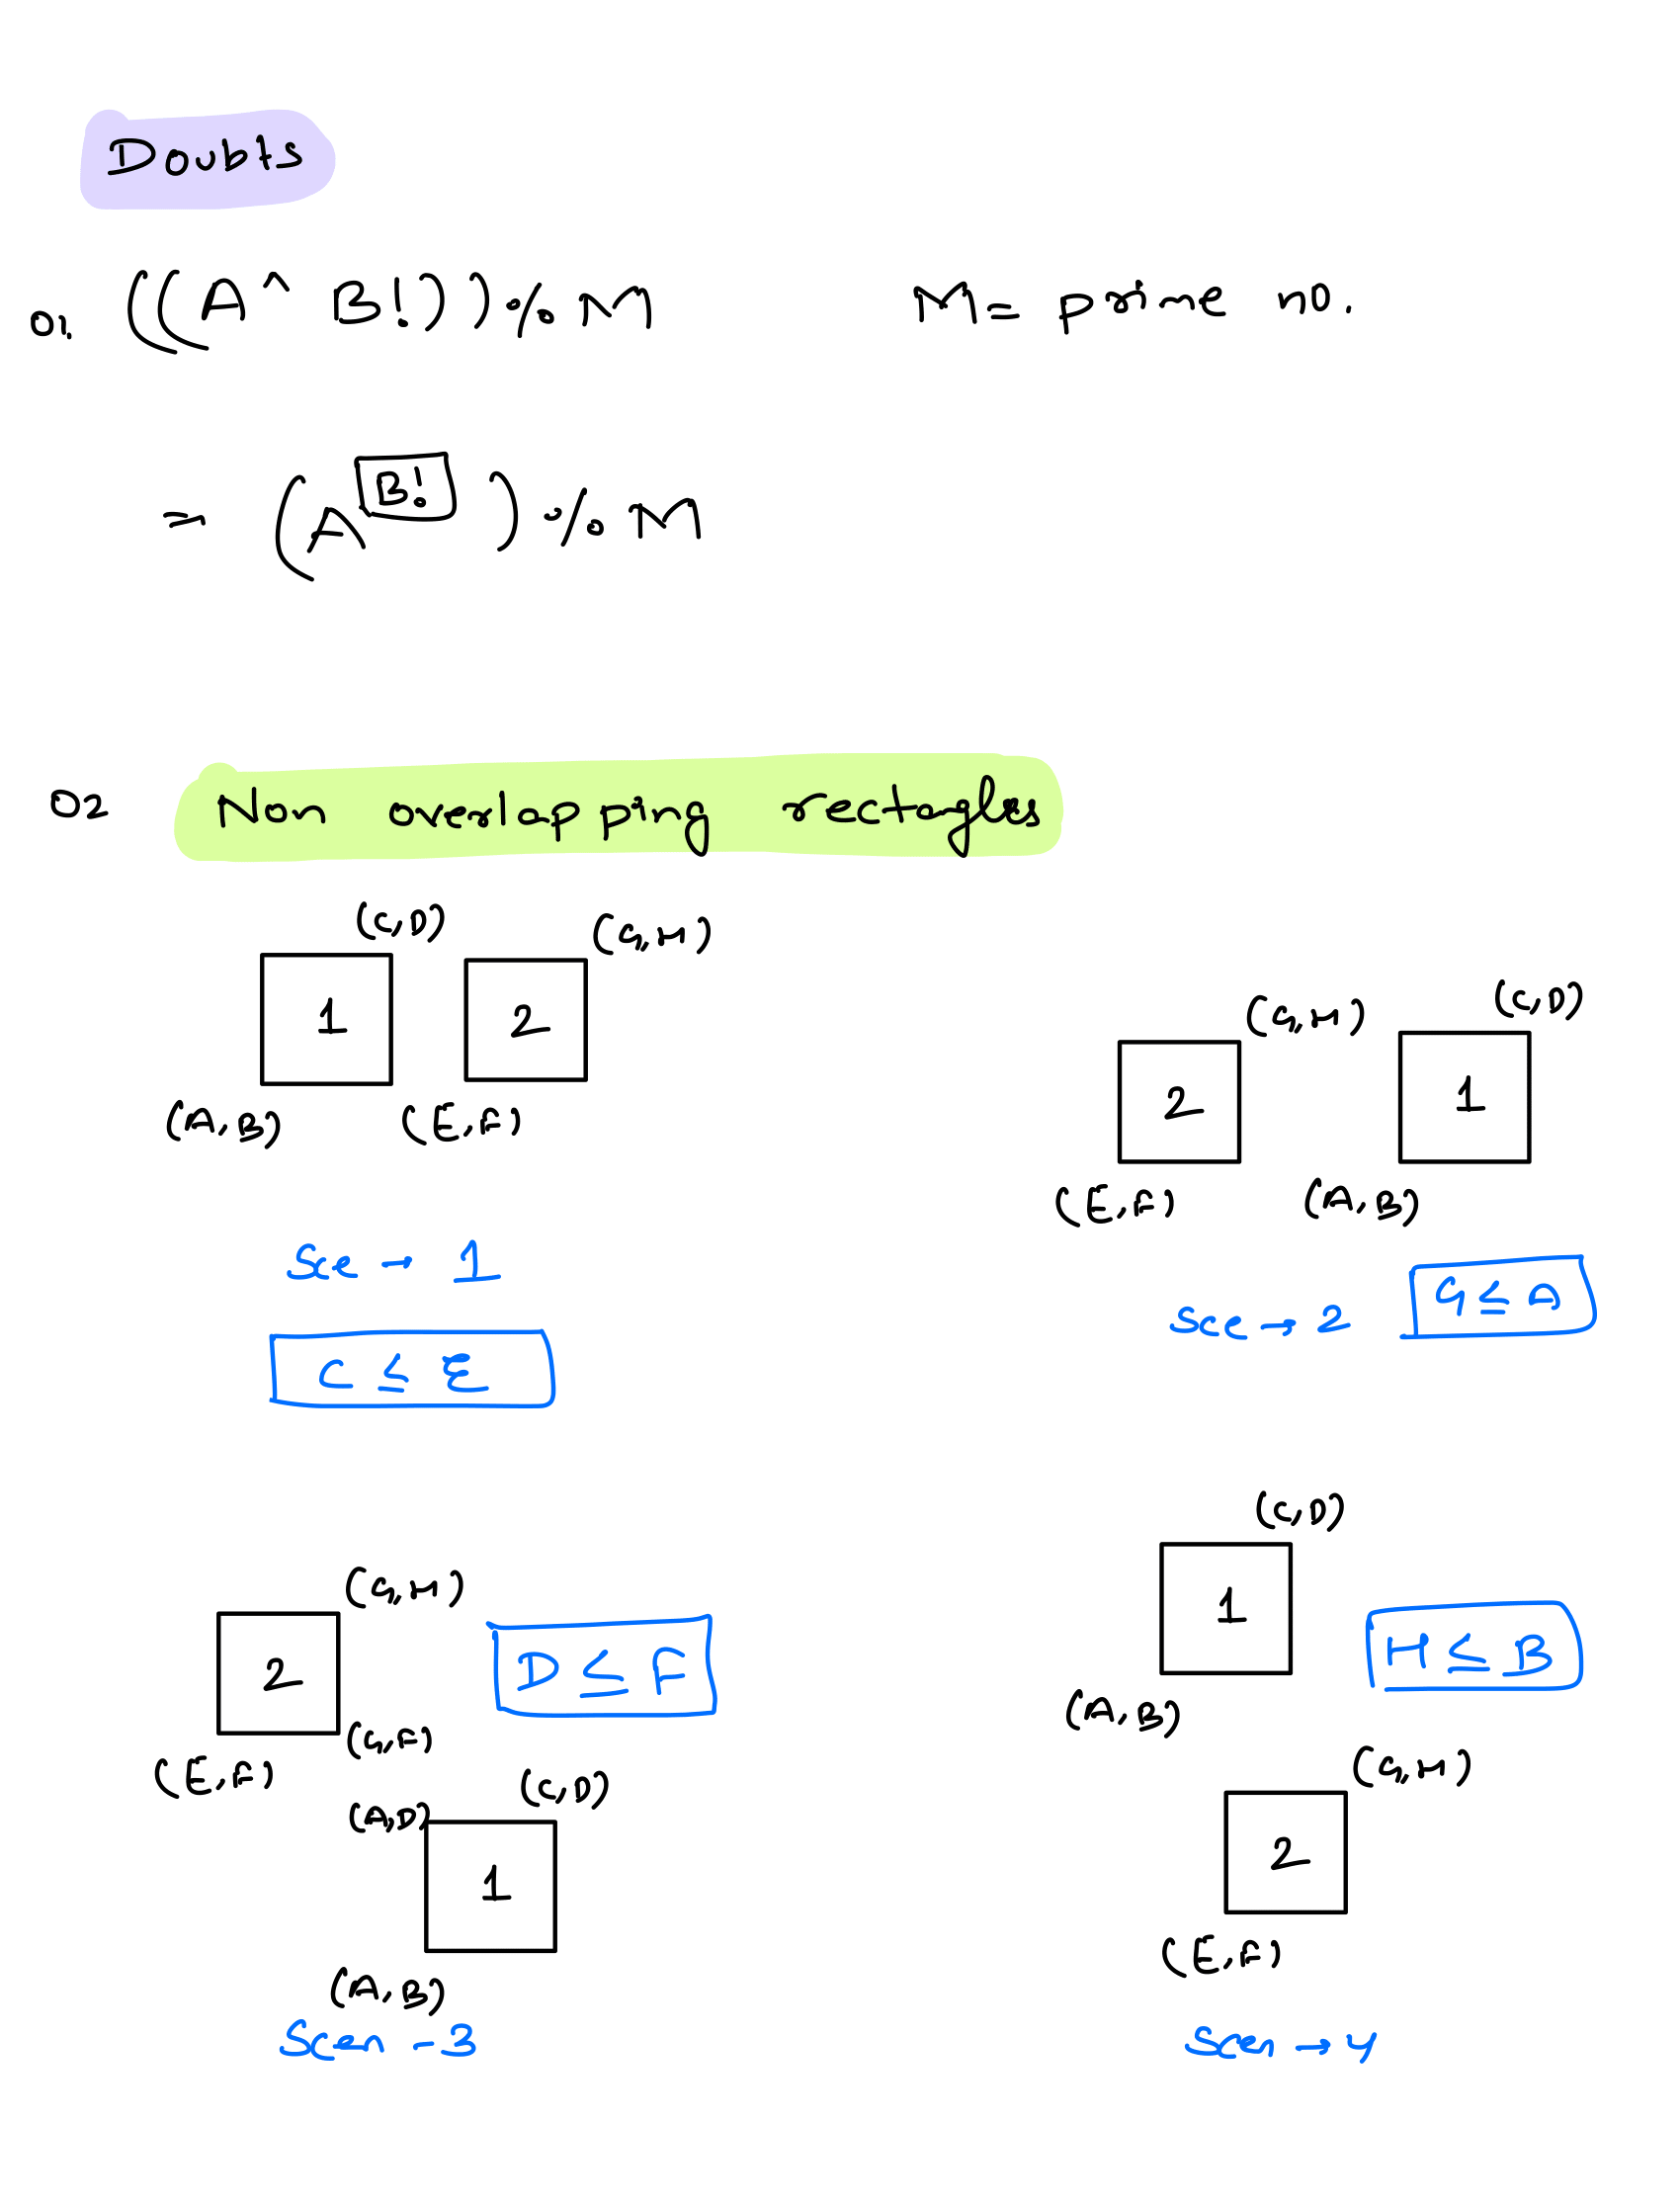 Doubts
01. ((A^ B!)) % M M = prime no.
= (A^B!) % M
02 Non overlapping rectagles
(C,D) (G,H)
1 2
(A,B) (E,F)
Sce → 1
C ≤ E
(G,H) (C,D)
2 1
(E,F) (A,B)
Sce → 2 G ≤ A
(G,H)
2 D ≤ F
(G,F)
(E,F)
(C,D)
(A,D)
1
(A,B)
Scen - 3
(C,D)
1 H ≤ B
(A,B)
(G,H)
2
(E,F)
Scen → 4